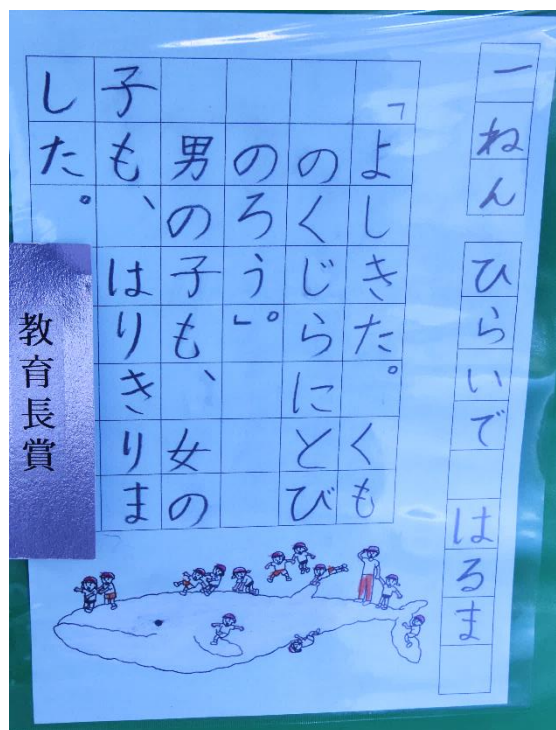 一ねん ひらいで はるま
「よしきた。くも
のくじらにとび
のろう」。
男の子も、女の
子も、はりきりま
した。
教育長賞